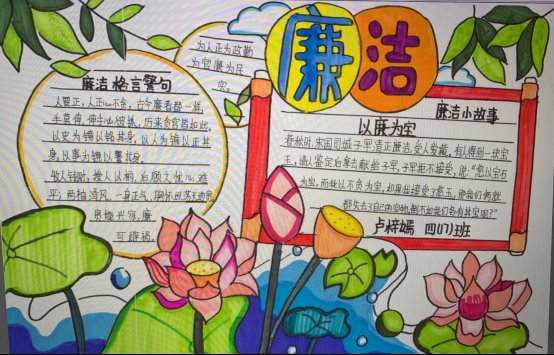 廉洁
为人正为政勤
为官廉为民
廉洁格言警句
人要正，人正心不贪，古今廉者都一样，
以史为镜以铭其身，以人为镜以正其
身，以事为镜以警其身。
收人钱财，授人以柄，后顾又忧心难
平；两袖清风，一身正气，胸怀坦荡天地宽。
患
可
廉洁小故事
以廉为宝
春秋时，宋国司城子罕清正廉洁，受人爱戴，有人得到一块宝
玉，请人鉴定后拿去献给子罕，子罕拒不接受，说：“您以宝石
为宝，而我以不贪为宝，如果我接受了您玉，那我们俩就
都失去了自己的宝物，倒不如我们各有其宝呢？”
卢梓 四(7)班